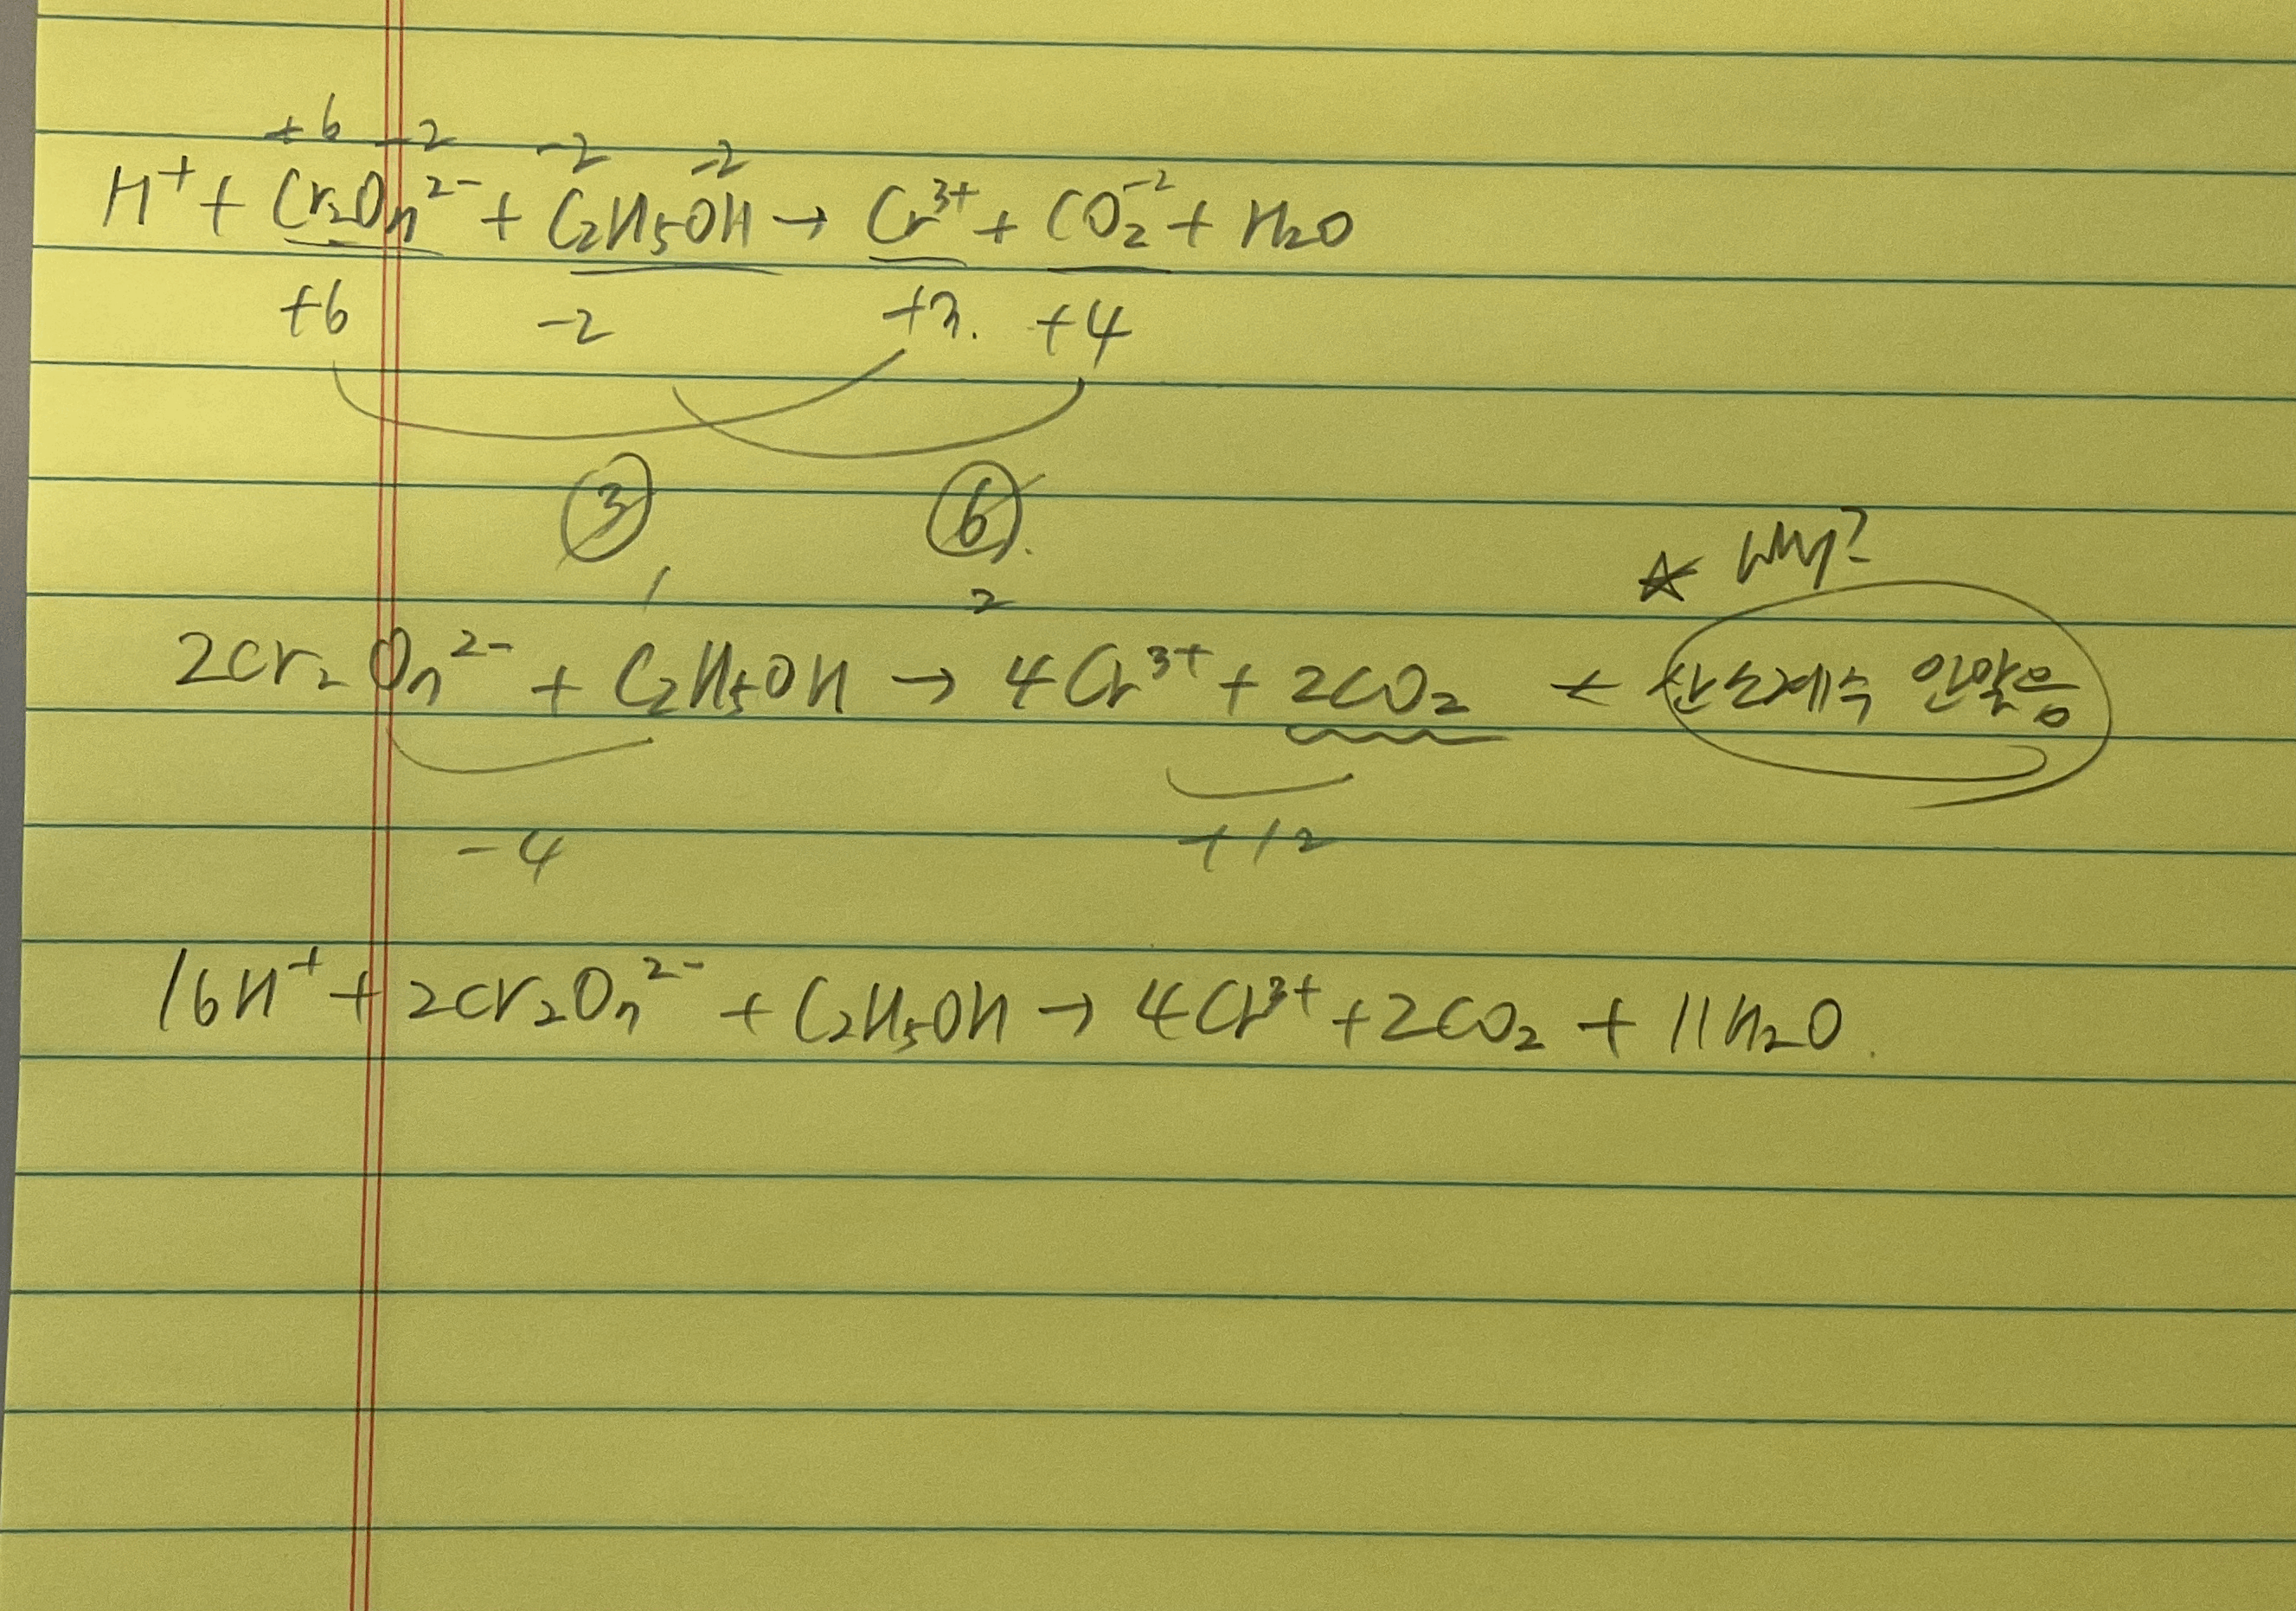 +6 -2 -2 -2
H⁺ + Cr₂O₇²⁻ + C₂H₅OH → Cr³⁺ + CO₂⁻² + H₂O
+6 -2 +3. +4
3 6
1 2
★ Why?
2Cr₂O₇²⁻ + C₂H₅OH → 4Cr³⁺ + 2CO₂ ← 산소계수 안맞음
-4 +12
16H⁺ + 2Cr₂O₇²⁻ + C₂H₅OH → 4Cr³⁺ + 2CO₂ + 11H₂O.